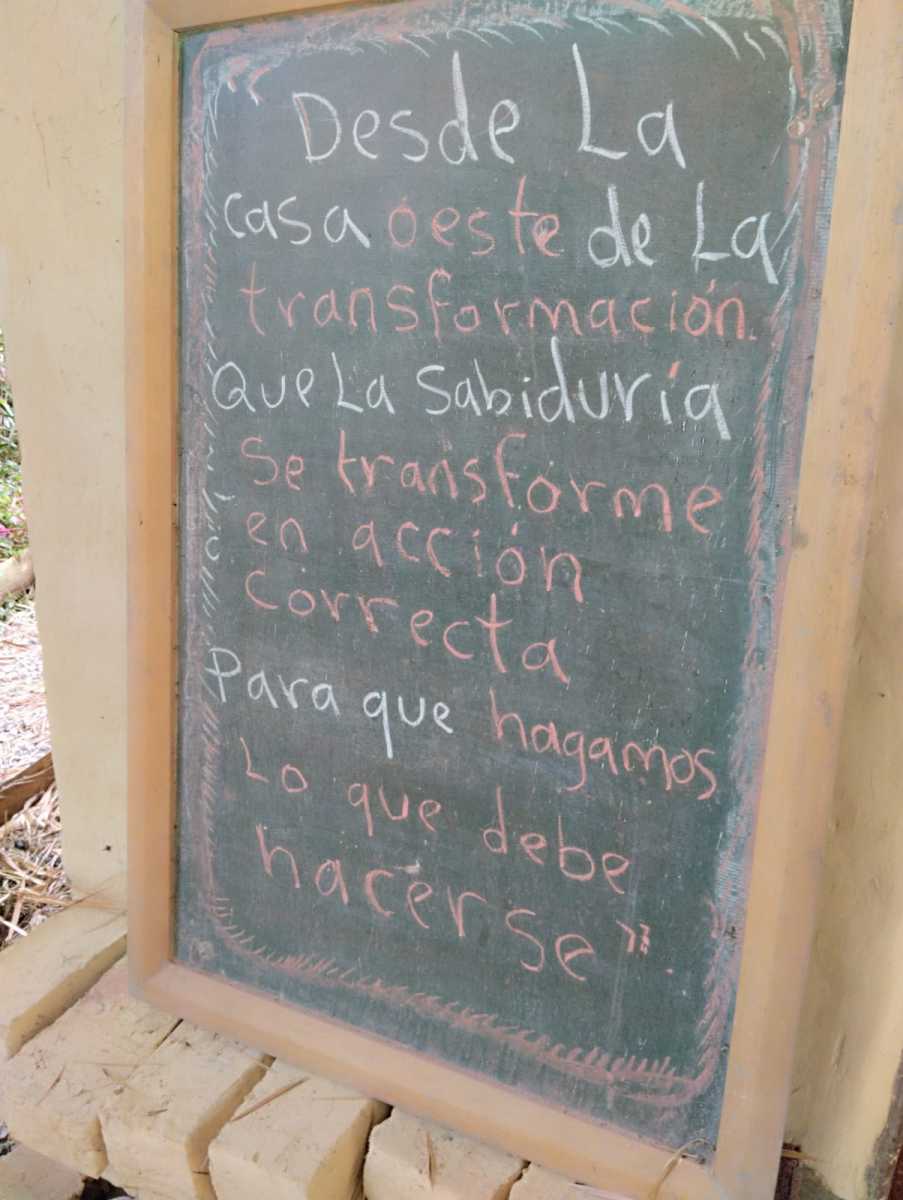 "Desde La
casa oeste de La
transformación.
Que La Sabiduría
Se transforme
en acción
correcta
Para que hagamos
Lo que debe
hacerse".